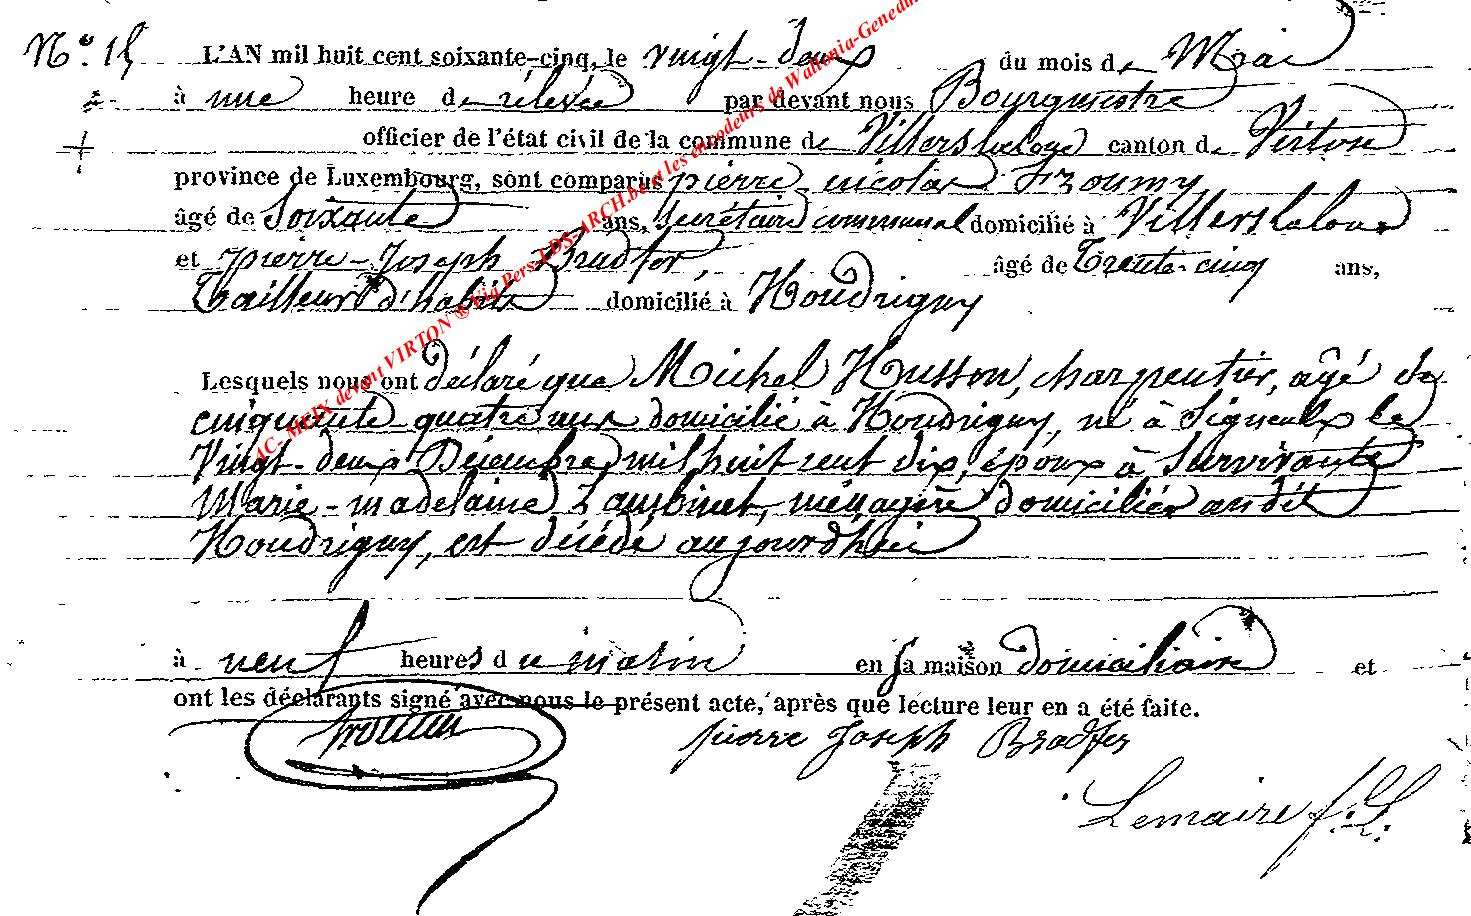 N° 15 L'AN mil huit cent soixante-cinq, le vingt-deux du mois de Mai
à une heure de rélevée par devant nous Bourgmestre
officier de l'état civil de la commune de Villers laloue canton de Virton
province de Luxembourg, sont comparus pierre-nicolas
âgé de Soixante ans, Secrétaire communal domicilié à Villers laloue
et pierre-Joseph Bradfer, âgé de Trente-cinq ans,
Tailleur d'habits domicilié à Houdrigny
Lesquels nous ont déclaré que Michel Husson, charpentier, âgé de
cinquante quatre ans domicilié à Houdrigny, né à Signeulx le
Vingt-deux Décembre mil huit cent dix, époux à Survivante
Marie-madelaine Lambinet, ménagère domiciliée audit
Houdrigny, est décédé aujourd'hui
à neuf heures du matin en sa maison domiciliaire et
ont les déclarants signé avec nous le présent acte, après que lecture leur en a été faite.
pierre Joseph Bradfer
Lemaire f. L.
AC-MEIX devant VIRTON ® Via Pers-LDS-ARCH.be et les encodeurs de Wallonia-Genedu